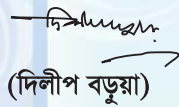 (দিলীপ বড়ুয়া)